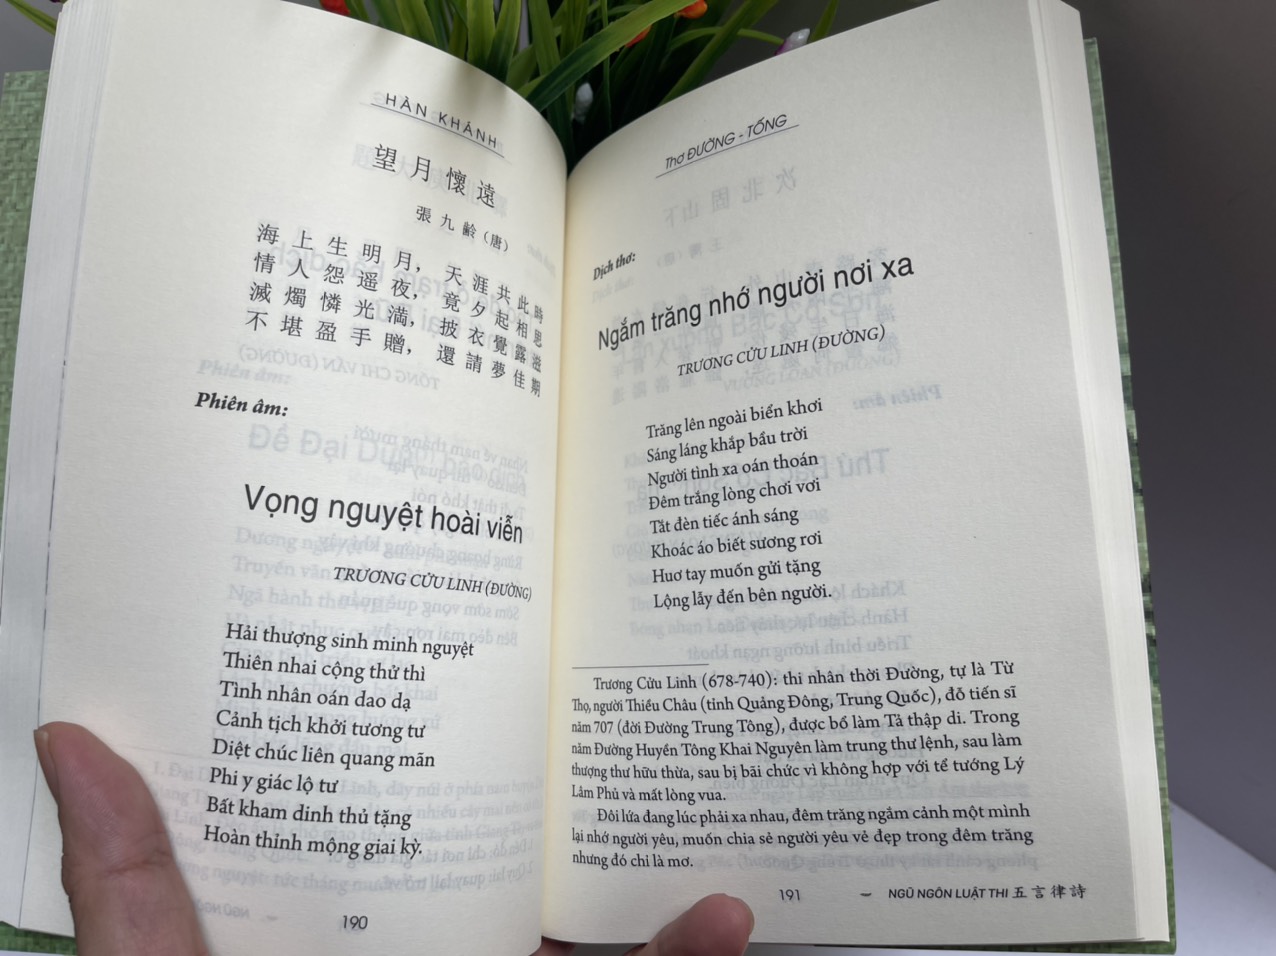 HÀN KHÁNH
望月懷遠
張九齡(唐)
海上生明月，天涯共此時
情人怨遥夜，竟夕起相思
滅燭憐光満，披衣覺露滋
不堪盈手贈，還請夢佳期
Phiên âm:
Vọng nguyệt hoài viễn
TRƯƠNG CỬU LINH (ĐƯỜNG)
Hải thượng sinh minh nguyệt
Thiên nhai cộng thử thì
Tình nhân oán dao dạ
Cảnh tịch khởi tương tư
Diệt chúc liên quang mãn
Phi y giác lộ tư
Bất kham dinh thủ tặng
Hoàn thỉnh mộng giai kỳ.
190
Thơ ĐƯỜNG - TỐNG
Dịch thơ:
Ngắm trăng nhớ người nơi xa
TRƯƠNG CỬU LINH (ĐƯỜNG)
Trăng lên ngoài biển khơi
Sáng láng khắp bầu trời
Người tình xa oán thoán
Đêm trắng lòng chơi vơi
Tắt đèn tiếc ánh sáng
Khoác áo biết sương rơi
Huơ tay muốn gửi tặng
Lộng lẫy đến bên người.
Trương Cửu Linh (678-740): thi nhân thời Đường, tự là Tử
Thọ, người Thiều Châu (tỉnh Quảng Đông, Trung Quốc), đỗ tiến sĩ
năm 707 (đời Đường Trung Tông), được bổ làm Tả thập di. Trong
năm Đường Huyền Tông Khai Nguyên làm trung thư lệnh, sau làm
thượng thư hữu thừa, sau bị bãi chức vì không hợp với tể tướng Lý
Lâm Phủ và mất lòng vua.
Đôi lứa đang lúc phải xa nhau, đêm trăng ngắm cảnh một mình
lại nhớ người yêu, muốn chia sẻ người yêu vẻ đẹp trong đêm trăng
nhưng đó chỉ là mơ.
191 NGŨ NGÔN LUẬT THI 五言律詩